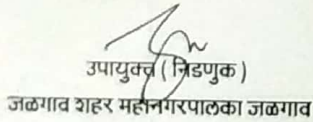 उपायुक्त ( निडणुक )
जळगाव शहर महानगरपालका जळगाव